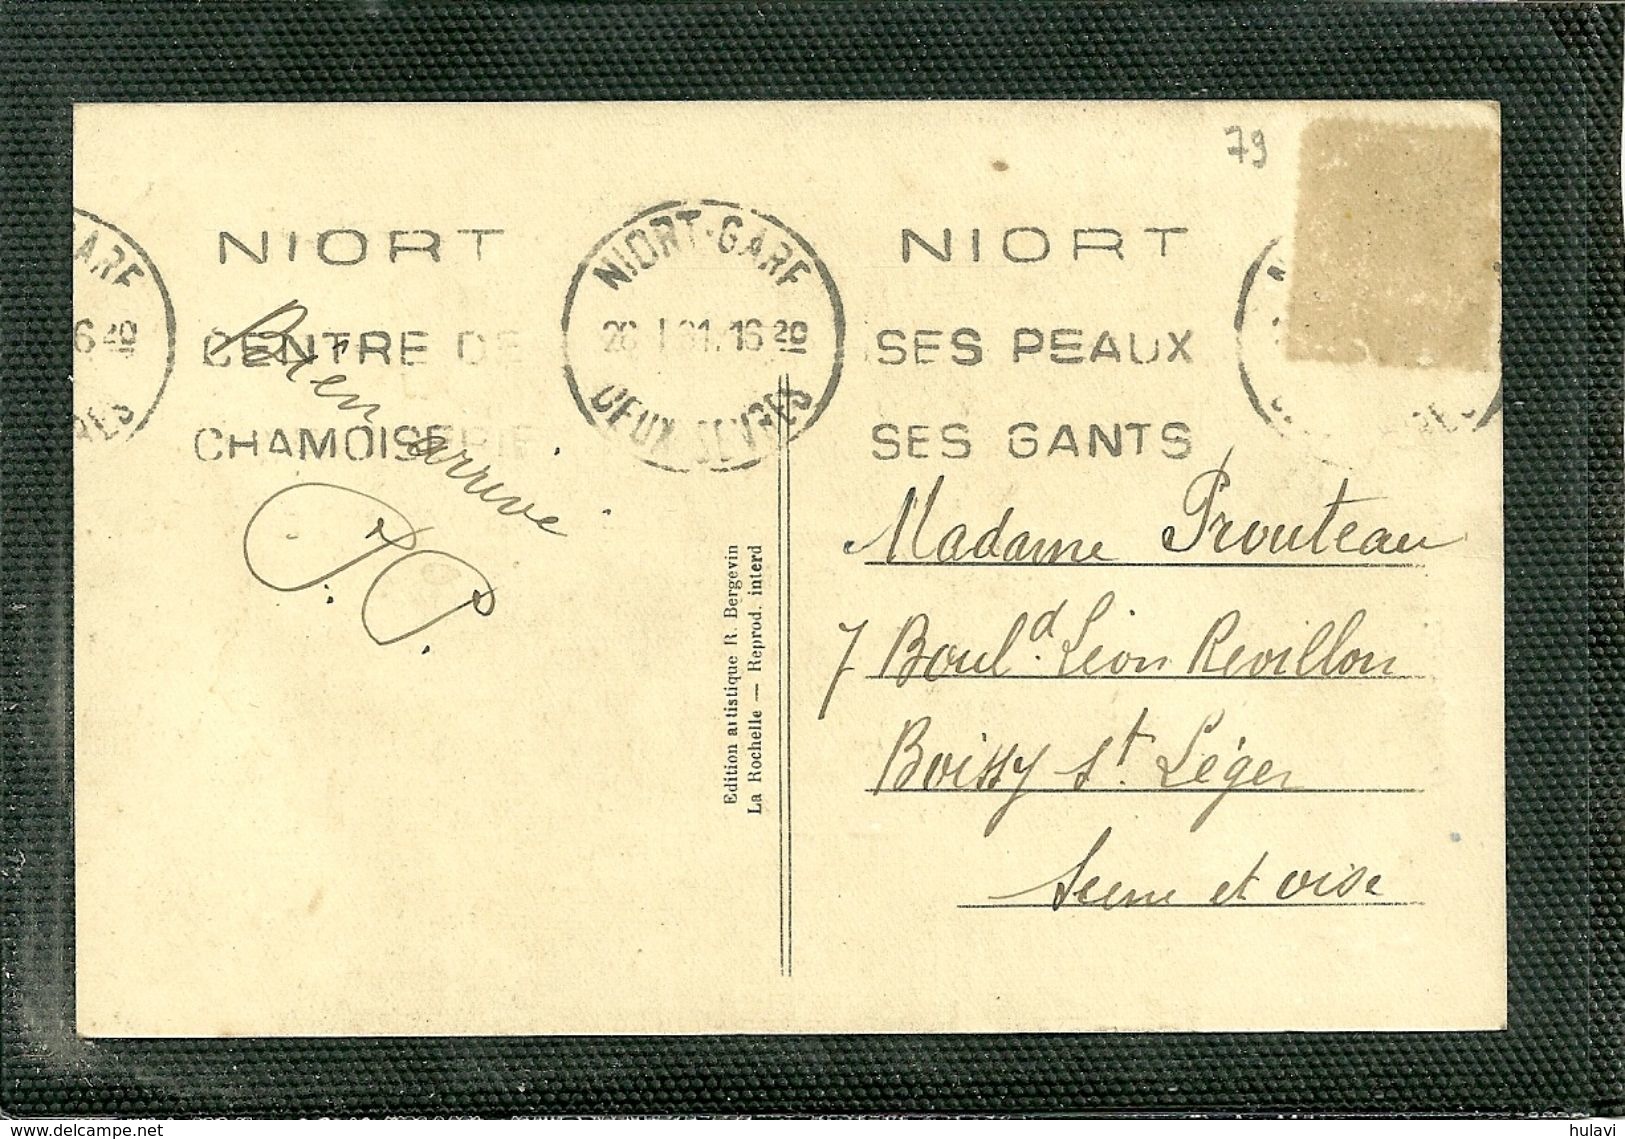 79
NIORT
CENTRE DE
CHAMOISERIE
NIORT-GARE
16 20
DEUX SEVRES
NIORT
SES PEAUX
SES GANTS
ARE
6 20
RES
Bien arrivé
P. P.
Edition artistique R. Bergevin
La Rochelle — Reprod. interd
Madame Prouteau
7 Boul.d Léon Revillon
Boissy St. Léger
Seine et oise
www.delcampe.net
hulavi